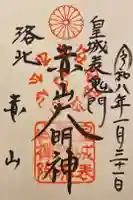 令和八年一月三十一日
皇城表鬼門
赤山大明神
洛北
赤山